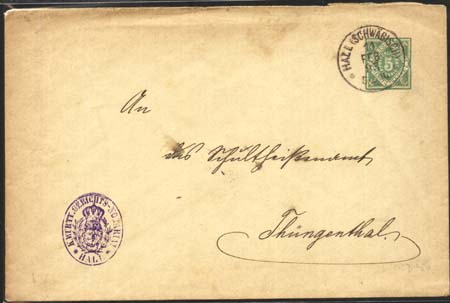 HALL (SCHWÄBISCH)
5
An
das Schultheißenamt
Thüngenthal.
K. WÜRTT. GERICHTS-NOTARIAT
HALL